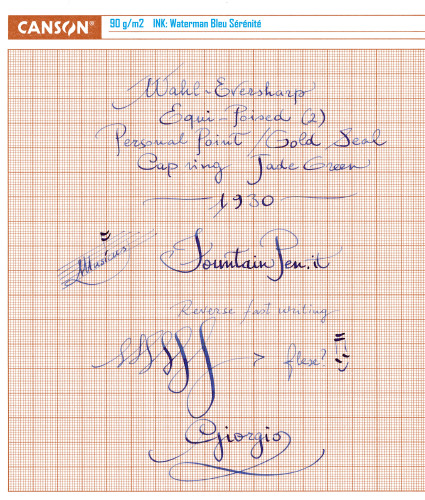 CANSON® 90 g/m2 INK: Waterman Bleu Sérénité
Wahl-Eversharp
Equi-Poised (2)
Personal Point / Gold Seal
Cap ring Jade Green
1930
Musicus
FountainPen.it
Reverse fast writing
flexe?
Giorgio